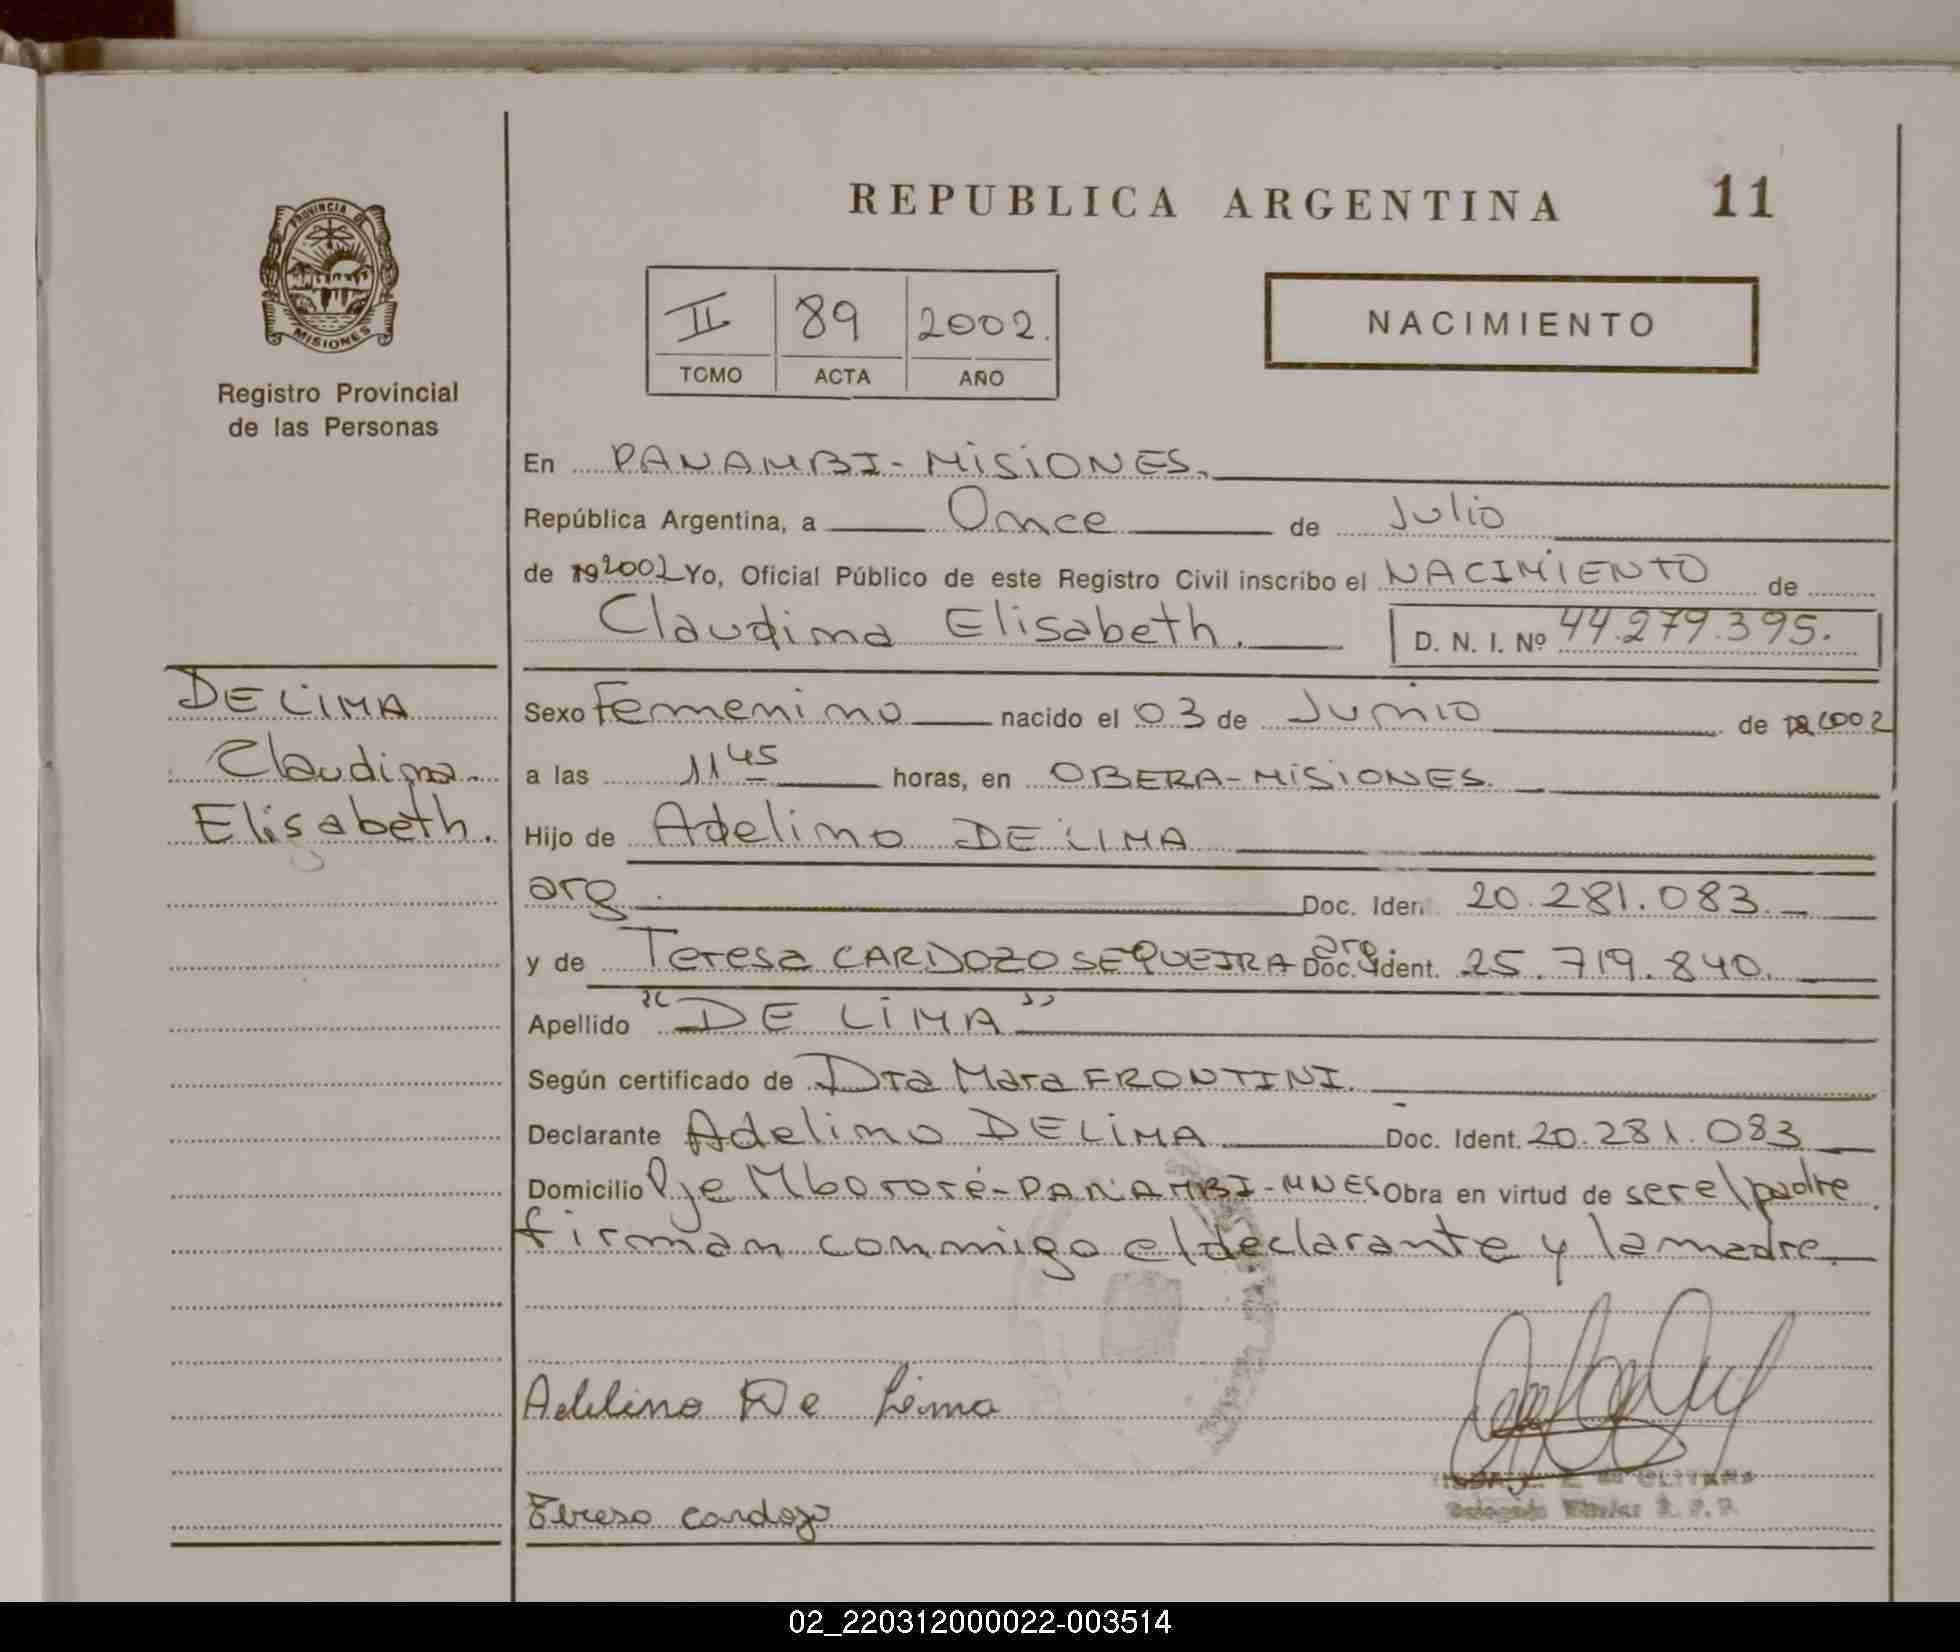 REPUBLICA ARGENTINA 11
PROVINCIA DE
MISIONES
Registro Provincial
de las Personas
II 89 2002.
TOMO ACTA AÑO
NACIMIENTO
En PANAMBI - MISIONES.
República Argentina, a Once de Julio
de 192002 Yo, Oficial Público de este Registro Civil inscribo el NACIMIENTO de
Claudina Elisabeth. D. N. I. Nº 44.279.395.
DE LIMA
Claudina
Elisabeth.
Sexo Femenino nacido el 03 de Junio de 2002
a las 11 45 horas, en OBERA - MISIONES.
Hijo de Adelino DE LIMA
arg. Doc. Ident. 20.281.083.
y de Teresa CARDOZO SEQUEIRA arg. Doc. Ident. 25.719.840.
Apellido "DE LIMA"
Según certificado de Dra Mara FRONTINI.
Declarante Adelino DE LIMA Doc. Ident. 20.281.083
Domicilio Pje Mbororé - PANAMBI - MNES Obra en virtud de ser el padre.
firman conmigo el declarante y la madre
Adelino De Lima
Tereso Cardozo
02_220312000022-003514